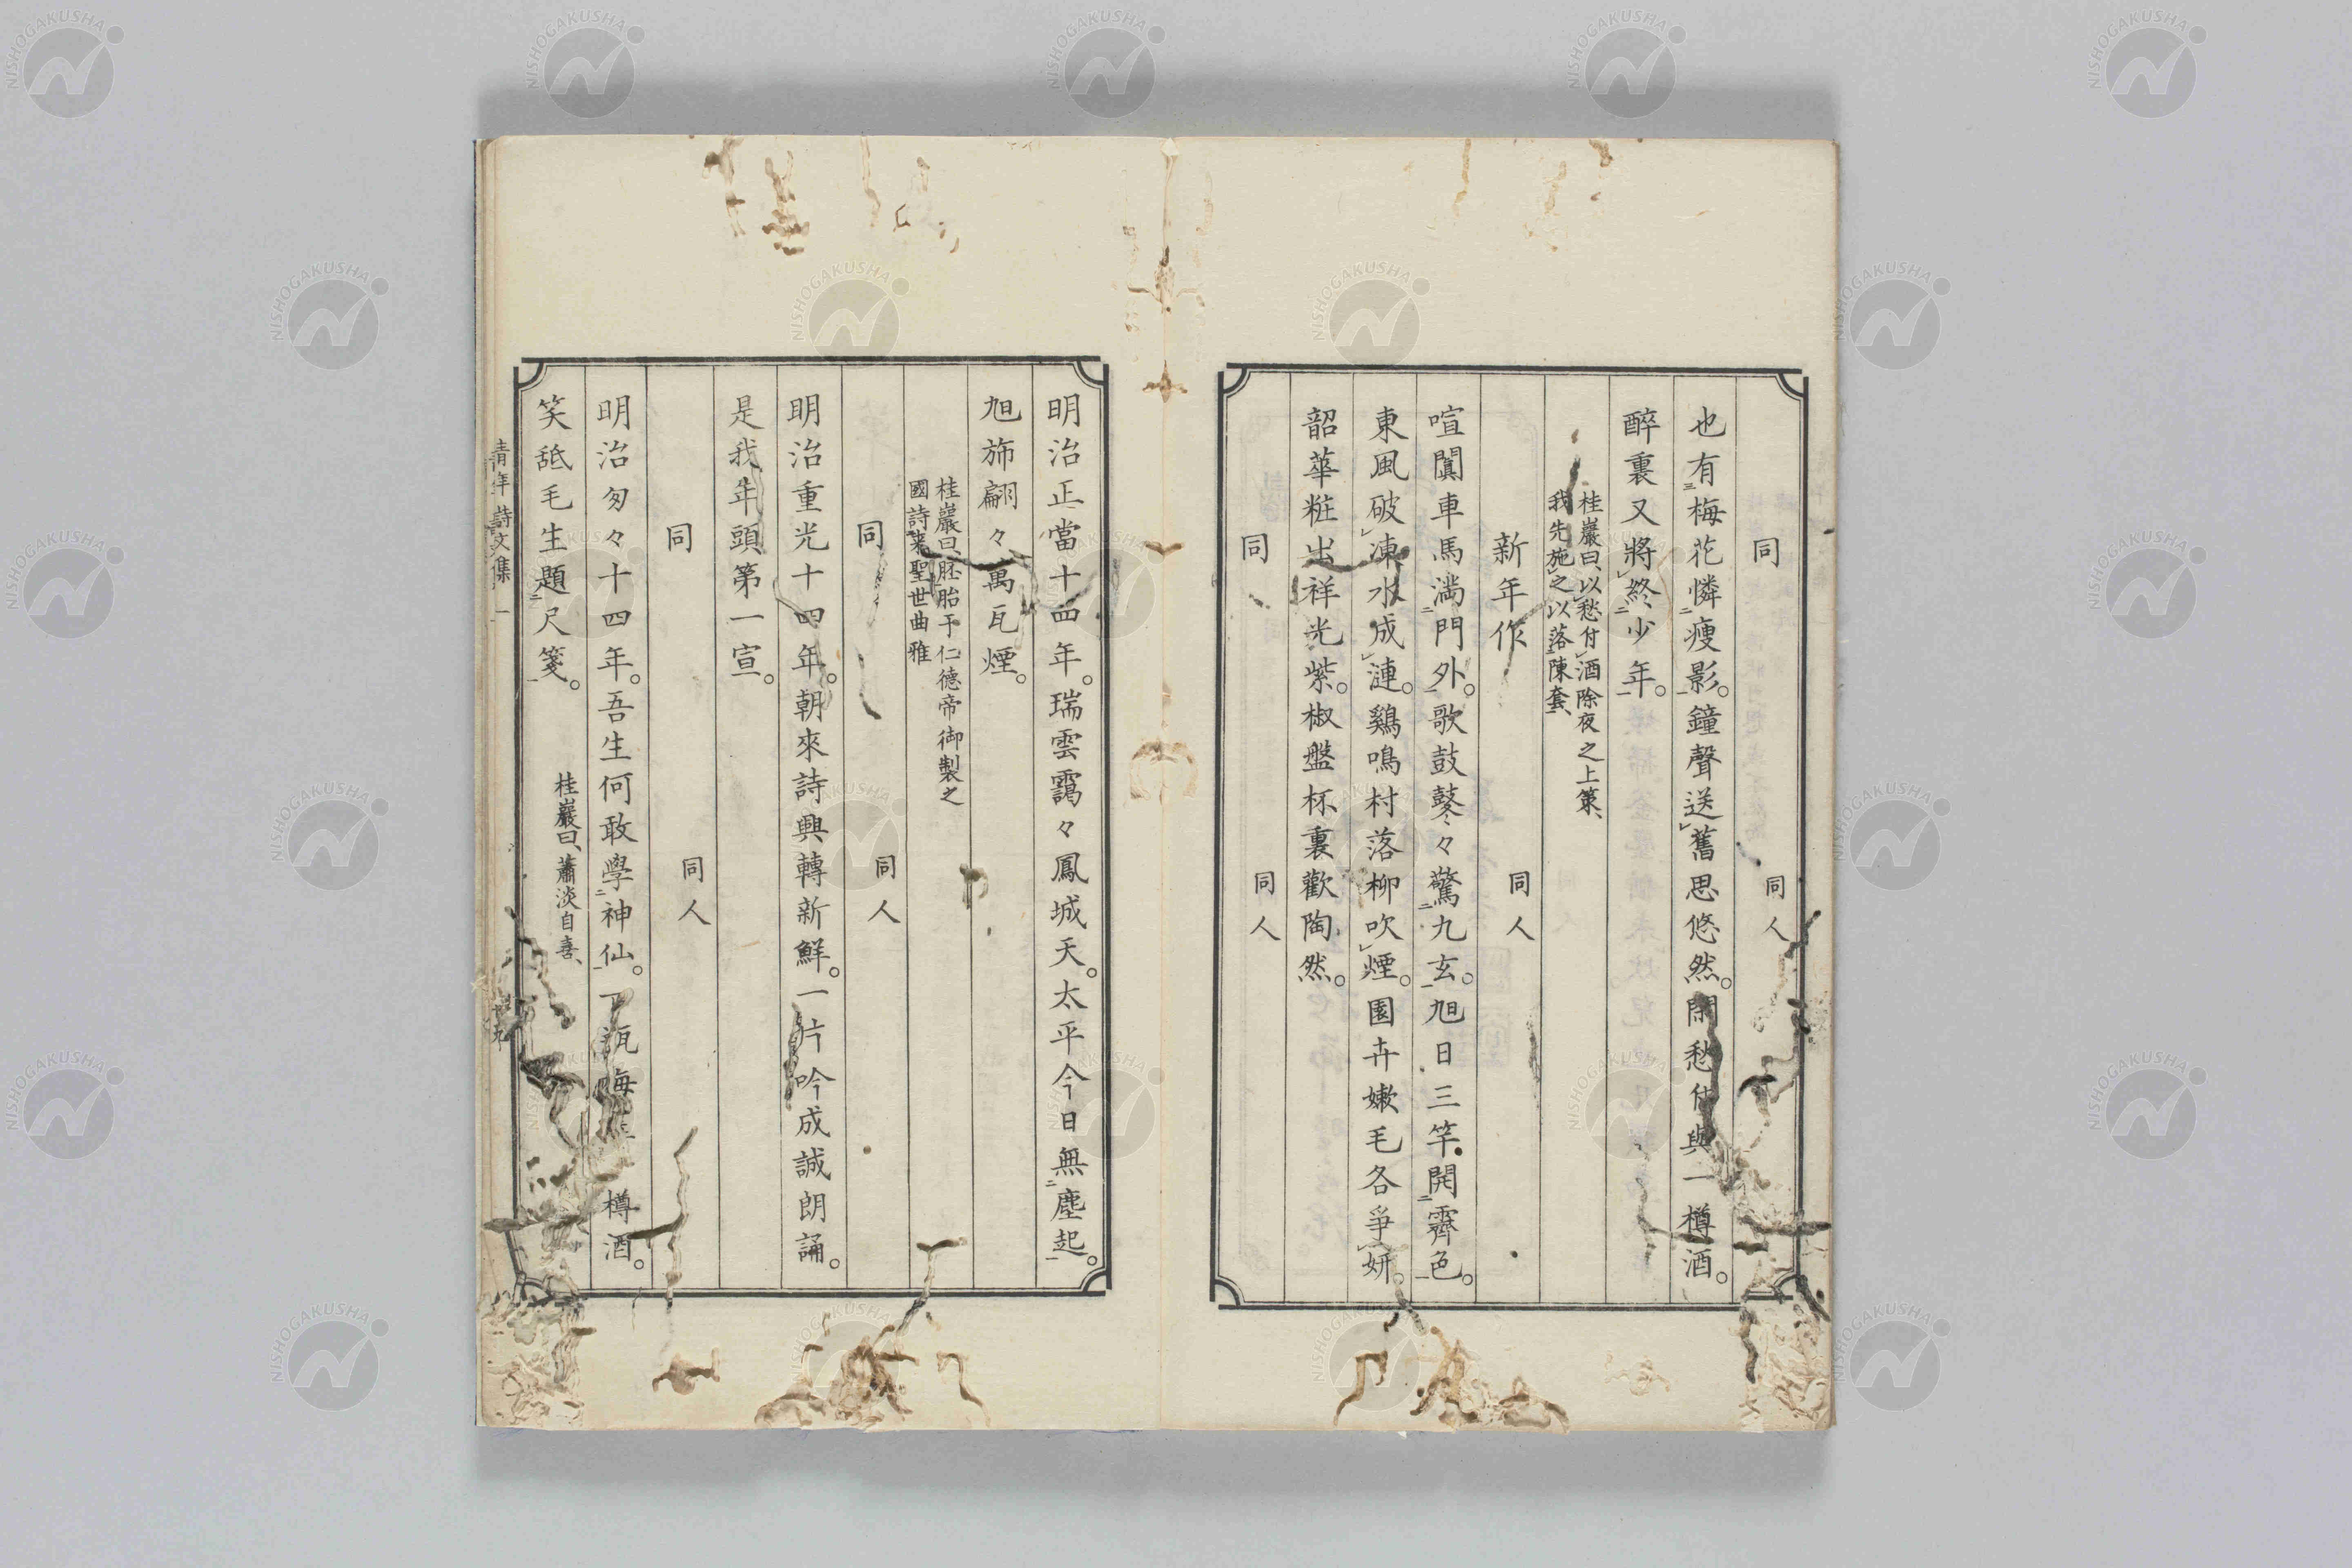 同　同人
也有梅花憐瘦影。鐘聲送舊思悠然。閑愁付與一樽酒。
醉裏又將終少年。
桂巖曰、以愁付酒除夜之上策、
我先施之以落陳套、
新年作　同人
喧闐車馬満門外。歌鼓鼕々驚九玄。旭日三竿開霽色。
東風破凍水成漣。鷄鳴村落柳吹煙。園卉嫩毛各爭妍。
韶華粧出祥光紫。椒盤杯裏歡陶然。
同　同人
明治正當十四年。瑞雲靄々鳳城天。太平今日無塵起。
旭斾翩々萬瓦煙。
桂巖曰、胚胎于仁德帝御製之
國詩来聖世曲雅
同　同人
明治重光十四年。朝來詩興轉新鮮。一片吟成誠朗誦。
是我年頭第一宣。
同　同人
明治匆々十四年。吾生何敢學神仙。一瓶梅樽酒。
笑舐毛生題尺箋。
桂巖曰、蕭淡自喜、
青年詩文集 一
NISHOGAKUSHA